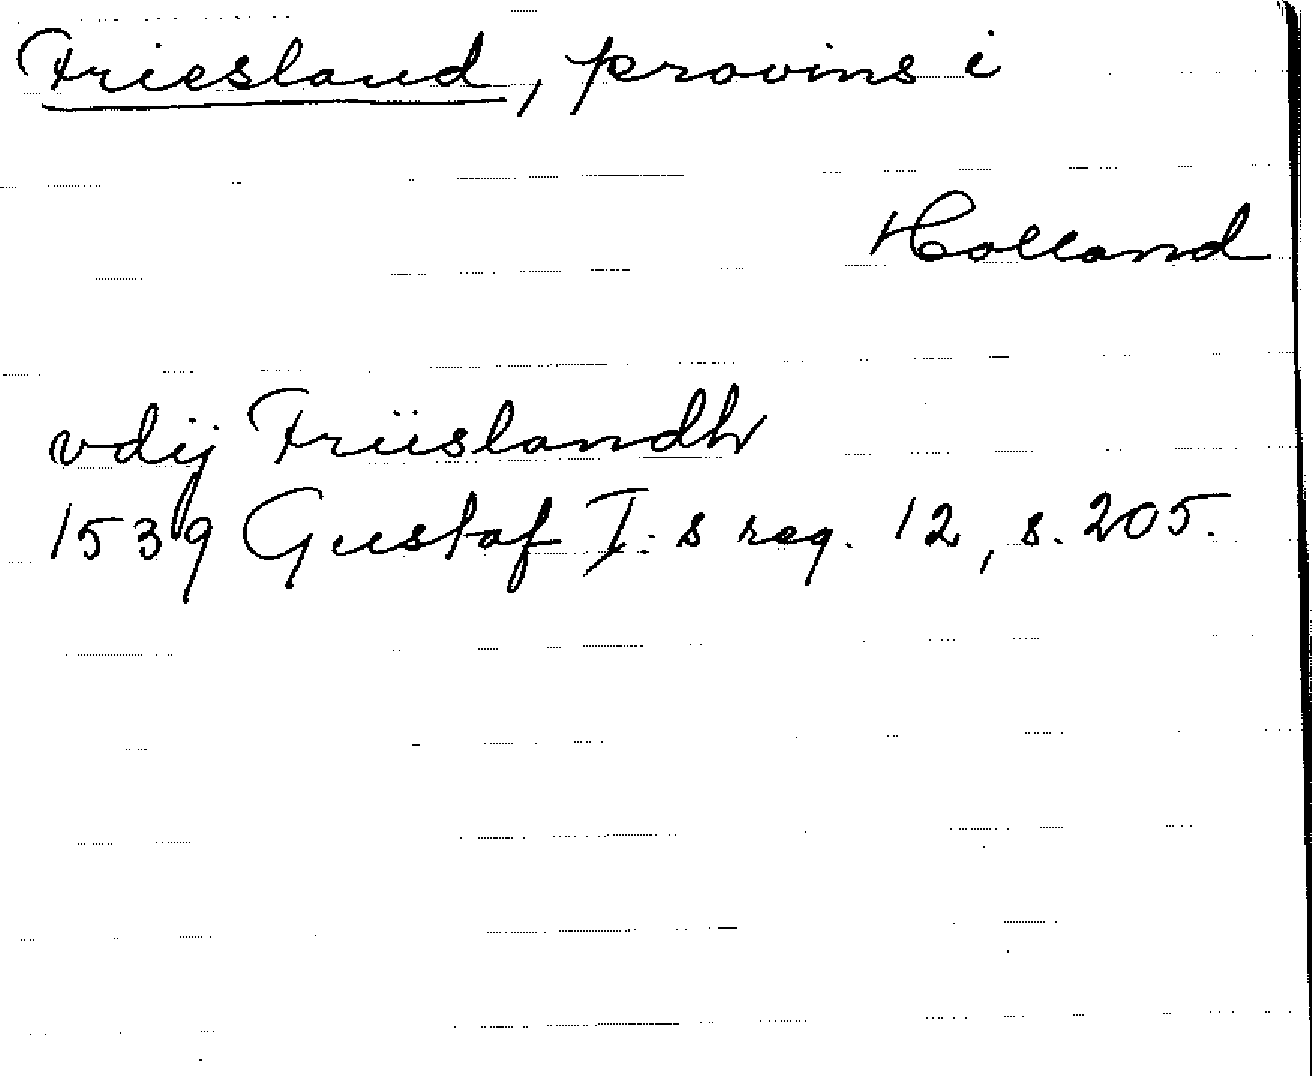 Friesland, provins i
Holland
vdij Friislandh
1539 Gustaf I:s reg. 12, s. 205.